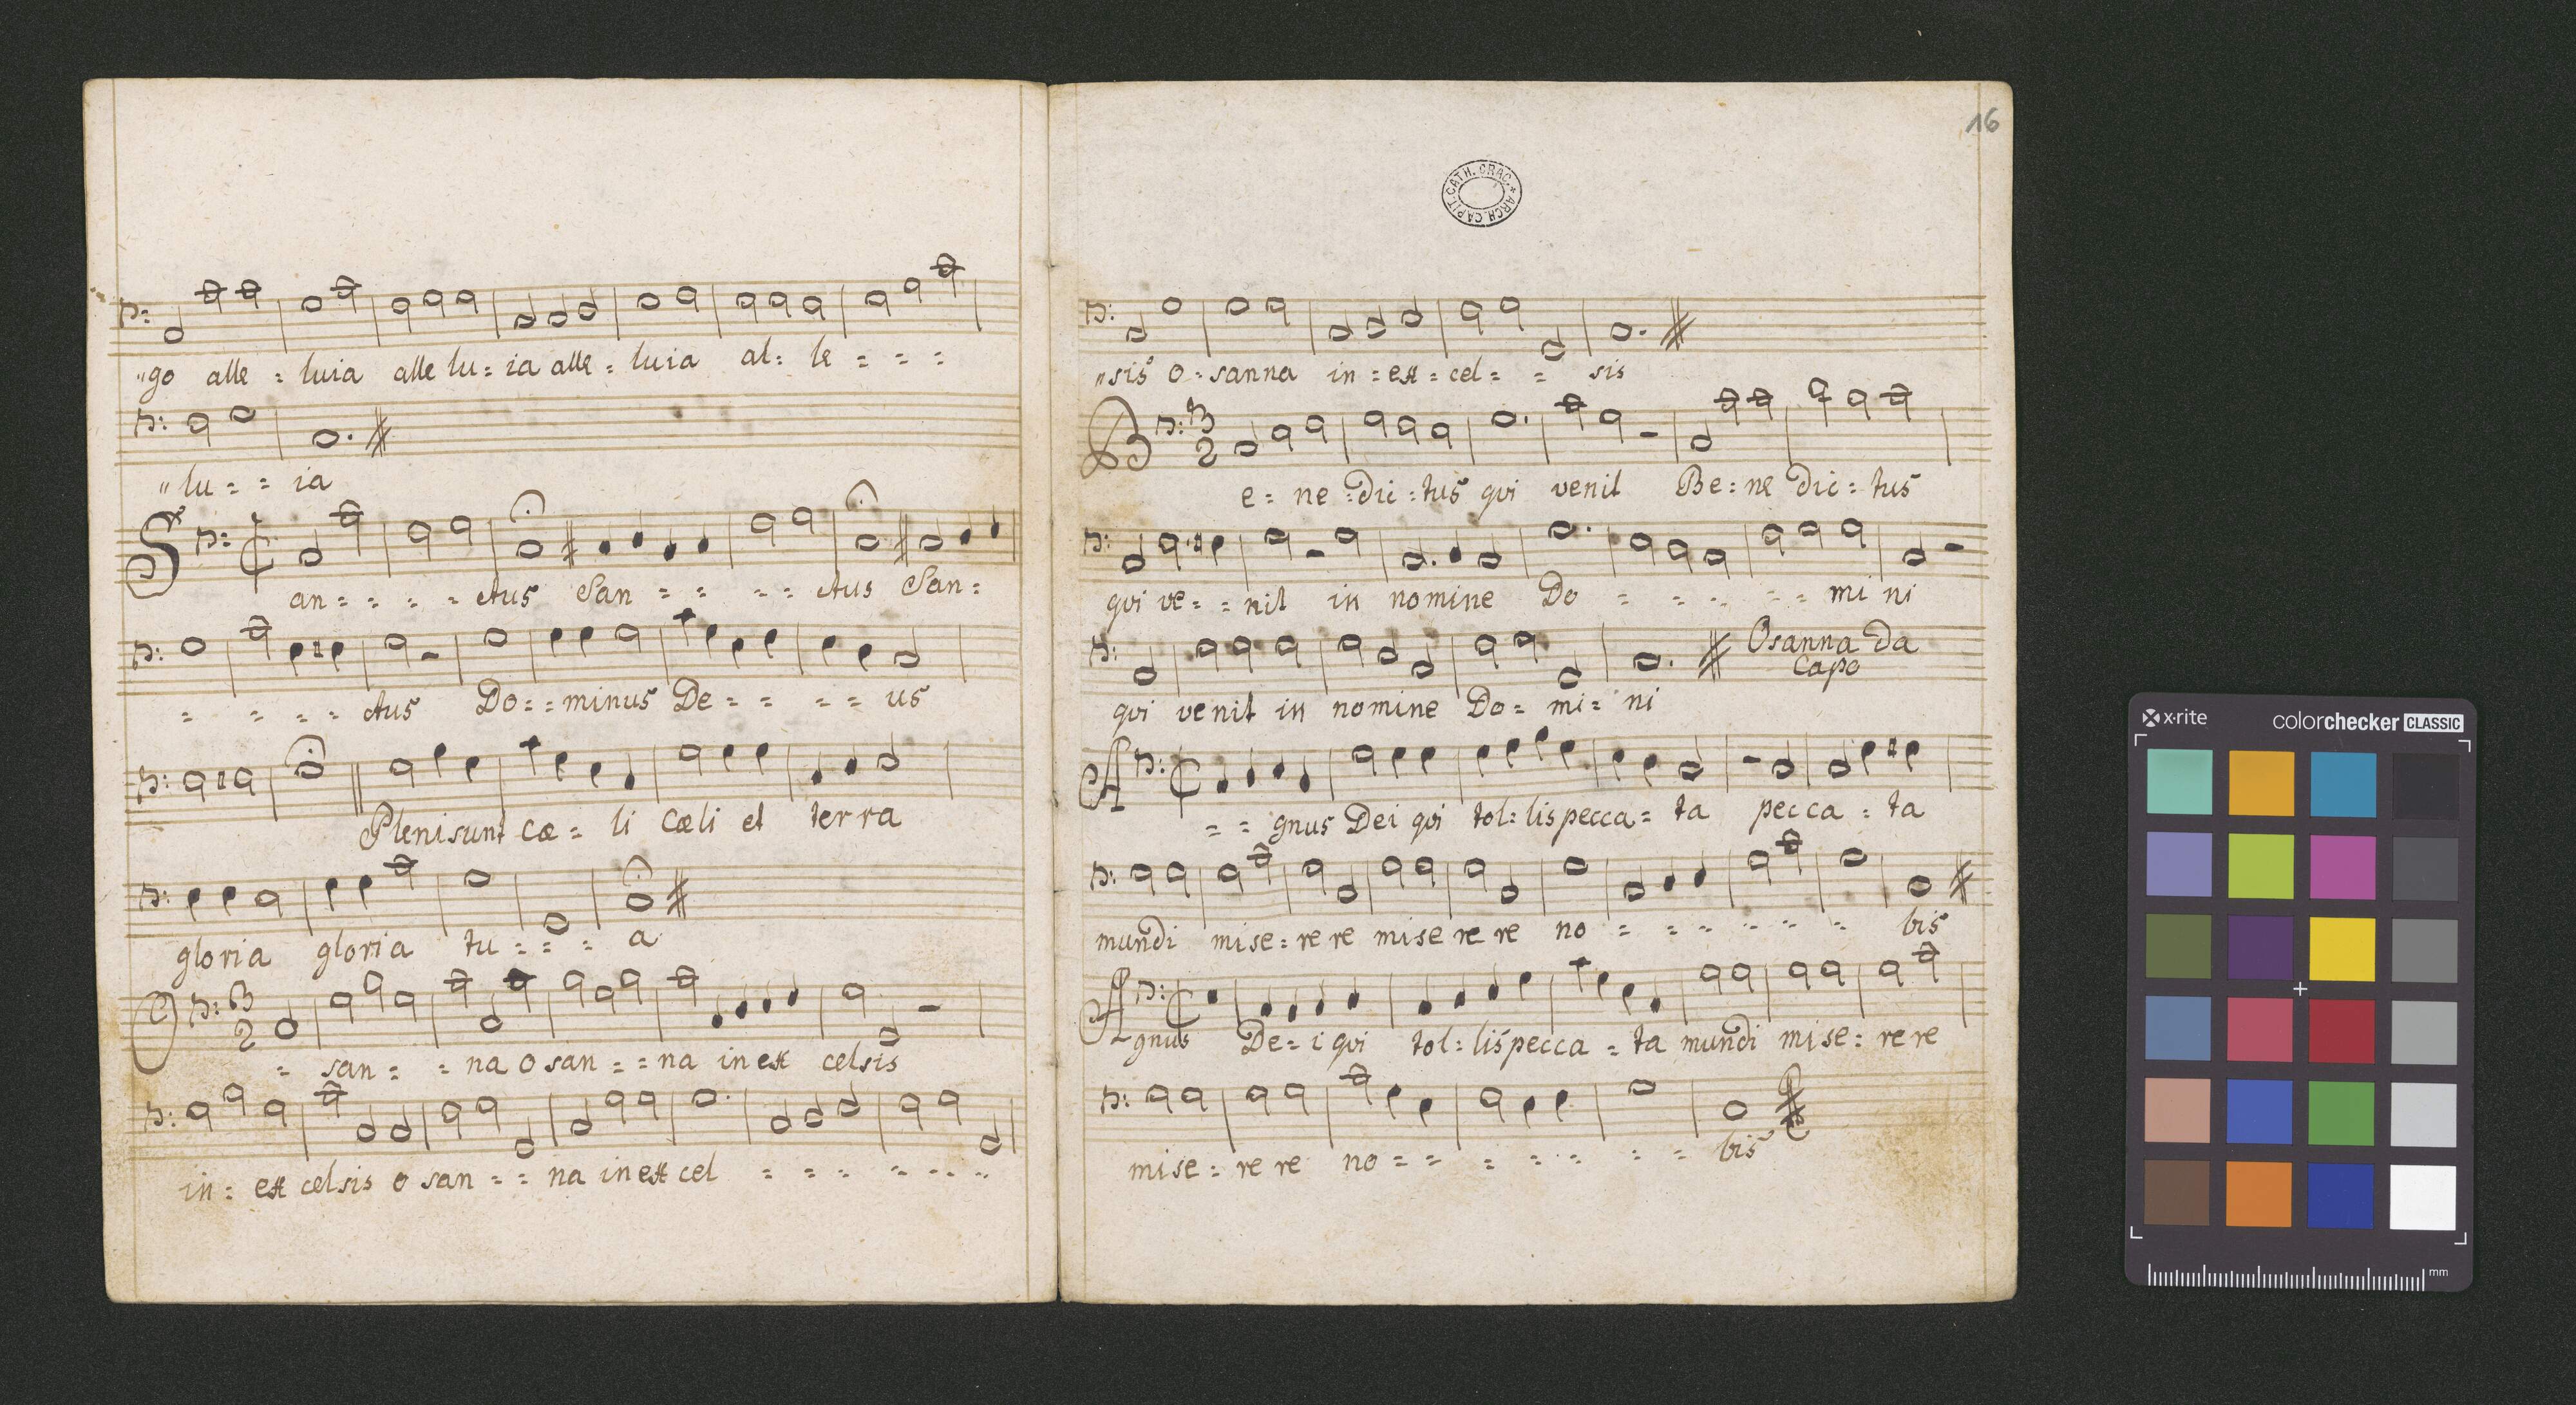 "go alle = luia alle lu = ia alle = luia al = le = = =
"lu = = ia
San = = = = ctus San = = = = ctus San =
= = = = ctus Do = = minus De = = = = us
Pleni sunt cæ = li cæli et terra
gloria gloria tu = = = a
3
2
O = san = = na o san = = na in ex celsis
in = ex celsis o san = = na in ex cel = = = = = =
16
ARCH. CAPIT. CATH. CRAC.
"sis o = sanna in = ex = cel = = sis
3
2
Be = ne = dic = tus qui venit Be = ne dic = tus
qui ve = = nit in nomine Do = = = = = mi ni
Osanna da
capo
qui venit in nomine Do = mi = ni
A = = gnus Dei qui tol = lis pecca = ta pecca = ta
mundi mise = rere mise re re no = = = = = = bis
Agnus De = i qui tol = lis pecca = ta mundi mise = re re
mise = re re no = = = = = = = bis
x·rite
colorchecker CLASSIC
mm